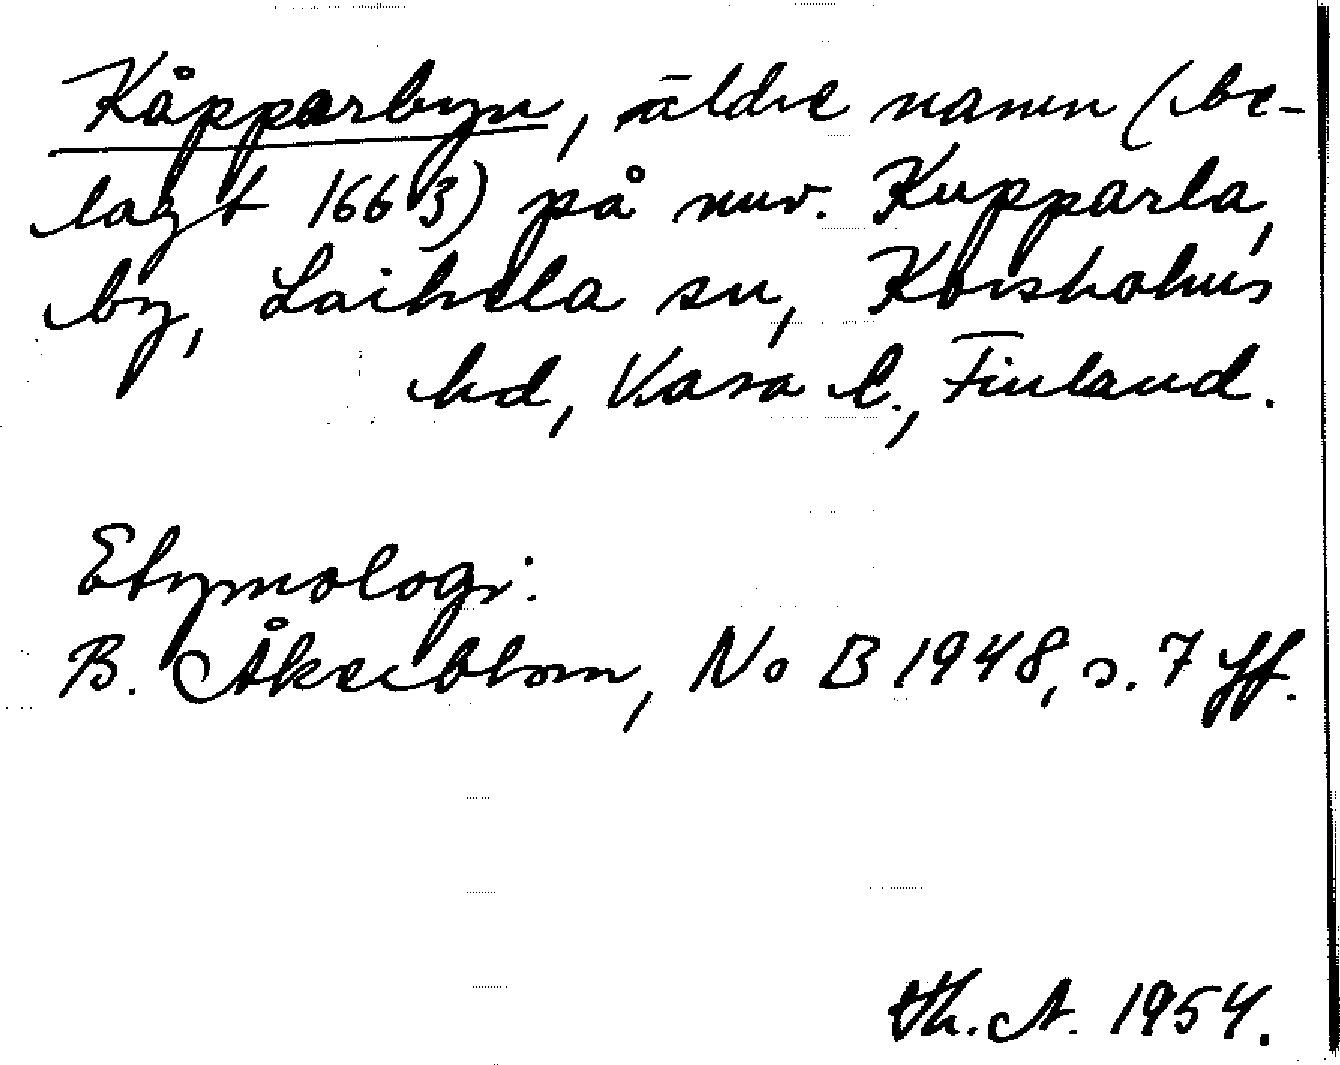 Kåpparbyn, äldre namn (be-
lagt 1663) på nuv. Kupparla,
by, Laihela sn, Korsholms
hd, Vasa l., Finland.
Etymologi:
B. Åkerblom, NoB 1948, s. 7 ff.
Th. A. 1954.